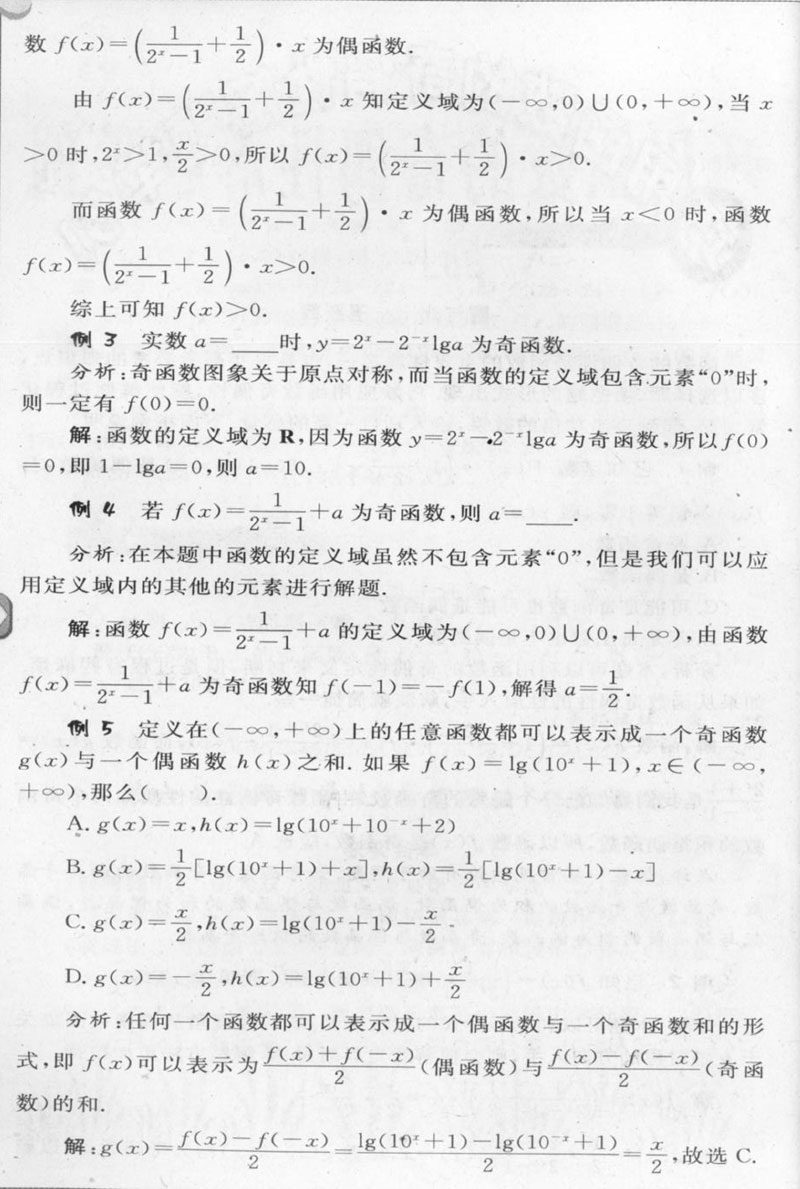 数 f(x)=(1/(2ˣ-1)+1/2)·x 为偶函数.
由 f(x)=(1/(2ˣ-1)+1/2)·x 知定义域为(-∞,0)∪(0,+∞),当 x
>0 时,2ˣ>1,x/2>0,所以 f(x)=(1/(2ˣ-1)+1/2)·x>0.
而函数 f(x)=(1/(2ˣ-1)+1/2)·x 为偶函数,所以当 x<0 时,函数
f(x)=(1/(2ˣ-1)+1/2)·x>0.
综上可知 f(x)>0.
例 3 实数 a=____时,y=2ˣ-2⁻ˣlga 为奇函数.
分析:奇函数图象关于原点对称,而当函数的定义域包含元素“0”时,
则一定有 f(0)=0.
解:函数的定义域为 R,因为函数 y=2ˣ-2⁻ˣlga 为奇函数,所以f(0)
=0,即 1-lga=0,则 a=10.
例 4 若 f(x)=1/(2ˣ-1)+a 为奇函数,则 a=____.
分析:在本题中函数的定义域虽然不包含元素“0”,但是我们可以应
用定义域内的其他的元素进行解题.
解:函数 f(x)=1/(2ˣ-1)+a 的定义域为(-∞,0)∪(0,+∞),由函数
f(x)=1/(2ˣ-1)+a 为奇函数知 f(-1)=-f(1),解得 a=1/2.
例 5 定义在(-∞,+∞)上的任意函数都可以表示成一个奇函数
g(x)与一个偶函数 h(x)之和.如果 f(x)=lg(10ˣ+1),x∈(-∞,
+∞),那么( ).
A. g(x)=x,h(x)=lg(10ˣ+10⁻ˣ+2)
B. g(x)=1/2[lg(10ˣ+1)+x],h(x)=1/2[lg(10ˣ+1)-x]
C. g(x)=x/2,h(x)=lg(10ˣ+1)-x/2
D. g(x)=-x/2,h(x)=lg(10ˣ+1)+x/2
分析:任何一个函数都可以表示成一个偶函数与一个奇函数和的形
式,即 f(x)可以表示为(f(x)+f(-x))/2(偶函数)与(f(x)-f(-x))/2(奇函
数)的和.
解:g(x)=(f(x)-f(-x))/2=(lg(10ˣ+1)-lg(10⁻ˣ+1))/2=x/2,故选 C.